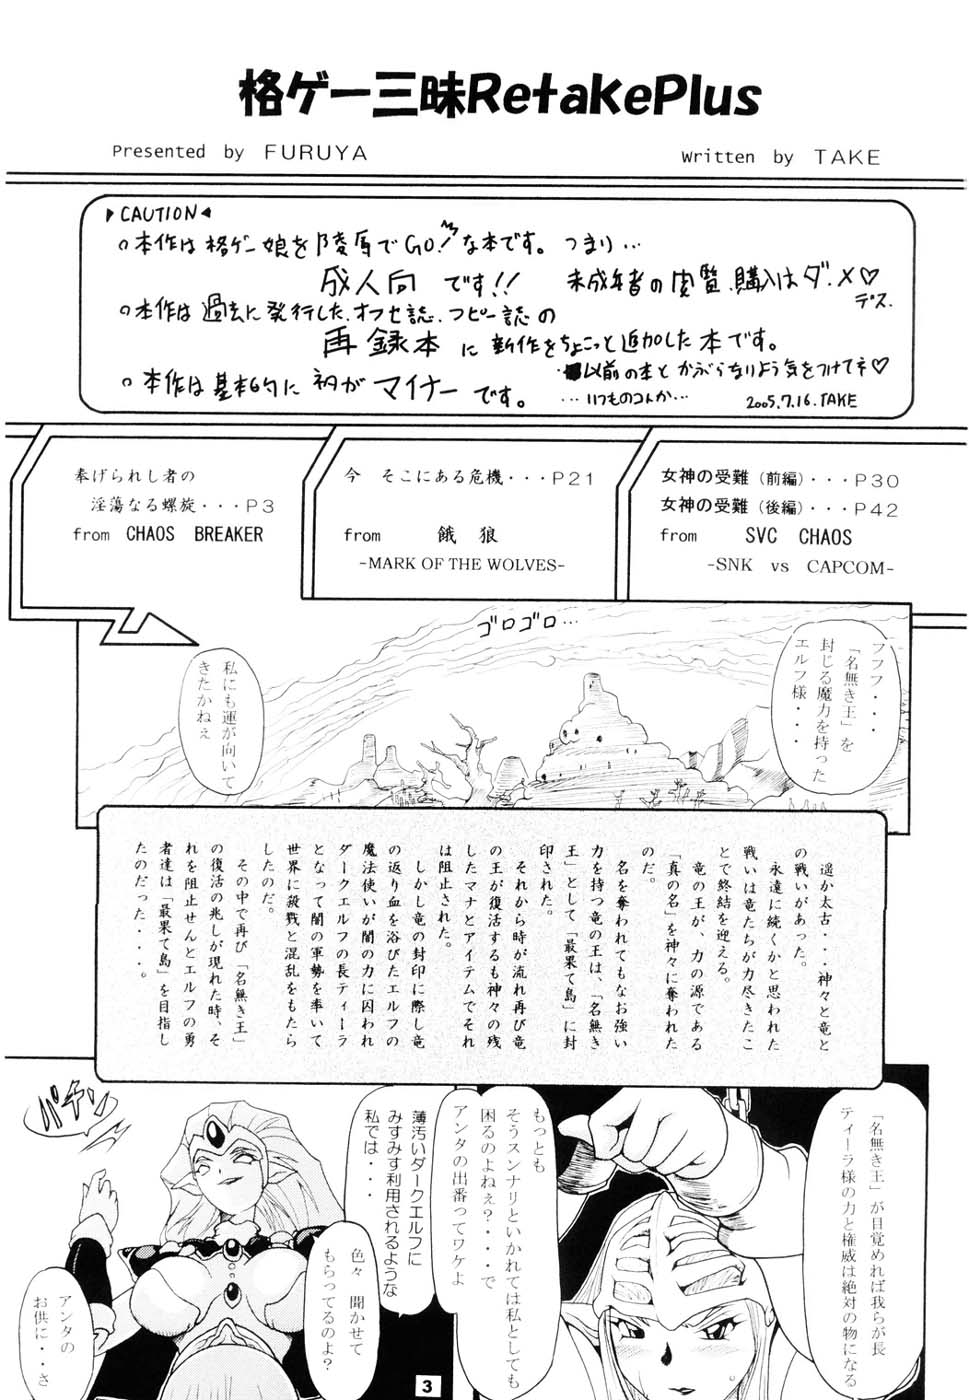 格ゲー三昧RetakePlus
Presented by FURUYA
Written by TAKE
CAUTION
○本作は格ゲー娘を陵辱でGO!な本です。つまり…
成人向です!! 未成年者の閲覧、購入はダ・メ♡
デス.
○本作は過去に発行した、オフセ誌、コピー誌の
再録本に新作をちょこっと追加した本です。
以前の本とかぶらないよう気をつけてネ♡
○本作は基本的にネタがマイナーです。
…いつものコンか…
2005.7.16.TAKE
奉げられし者の
淫蕩なる螺旋・・・P3
from CHAOS BREAKER
今 そこにある危機・・・P21
from 餓狼
-MARK OF THE WOLVES-
女神の受難(前編)・・・P30
女神の受難(後編)・・・P42
from SVC CHAOS
-SNK vs CAPCOM-
ゴロゴロ…
フフフ・・・
「名無き王」を
封じる魔力を持った
エルフ様・・・
私にも運が向いて
きたかねぇ
遥か太古・・・神々と竜と
の戦いがあった。
永遠に続くかと思われた
戦いは竜たちが力尽きたこ
とで終結を迎える。
竜の王が、力の源である
「真の名」を神々に奪われた
のだ。
名を奪われてもなお強い
力を持つ竜の王は、「名無き
王」として「最果て島」に封
印された。
それから時が流れ再び竜
の王が復活するも神々の残
したマナとアイテムでそれ
は阻止された。
しかし竜の封印に際し竜
の返り血を浴びたエルフの
魔法使いが闇の力に囚われ
ダークエルフの長ティーラ
となって闇の軍勢を率いて
世界に殺戮と混乱をもたら
したのだ。
その中で再び「名無き王」
の復活の兆しが現れた時、そ
れを阻止せんとエルフの勇
者達は「最果て島」を目指し
たのだった・・・。
「名無き王」が目覚めれば我らが長
ティーラ様の力と権威は絶対の物になる
もっとも
そうスンナリといかれては私としても
困るのよねぇ?・・・で
アンタの出番ってワケよ
薄汚いダークエルフに
みすみす利用されるような
私では・・・
パチン
色々 聞かせて
もらってるのよ?
アンタの
お供に・・さ
3